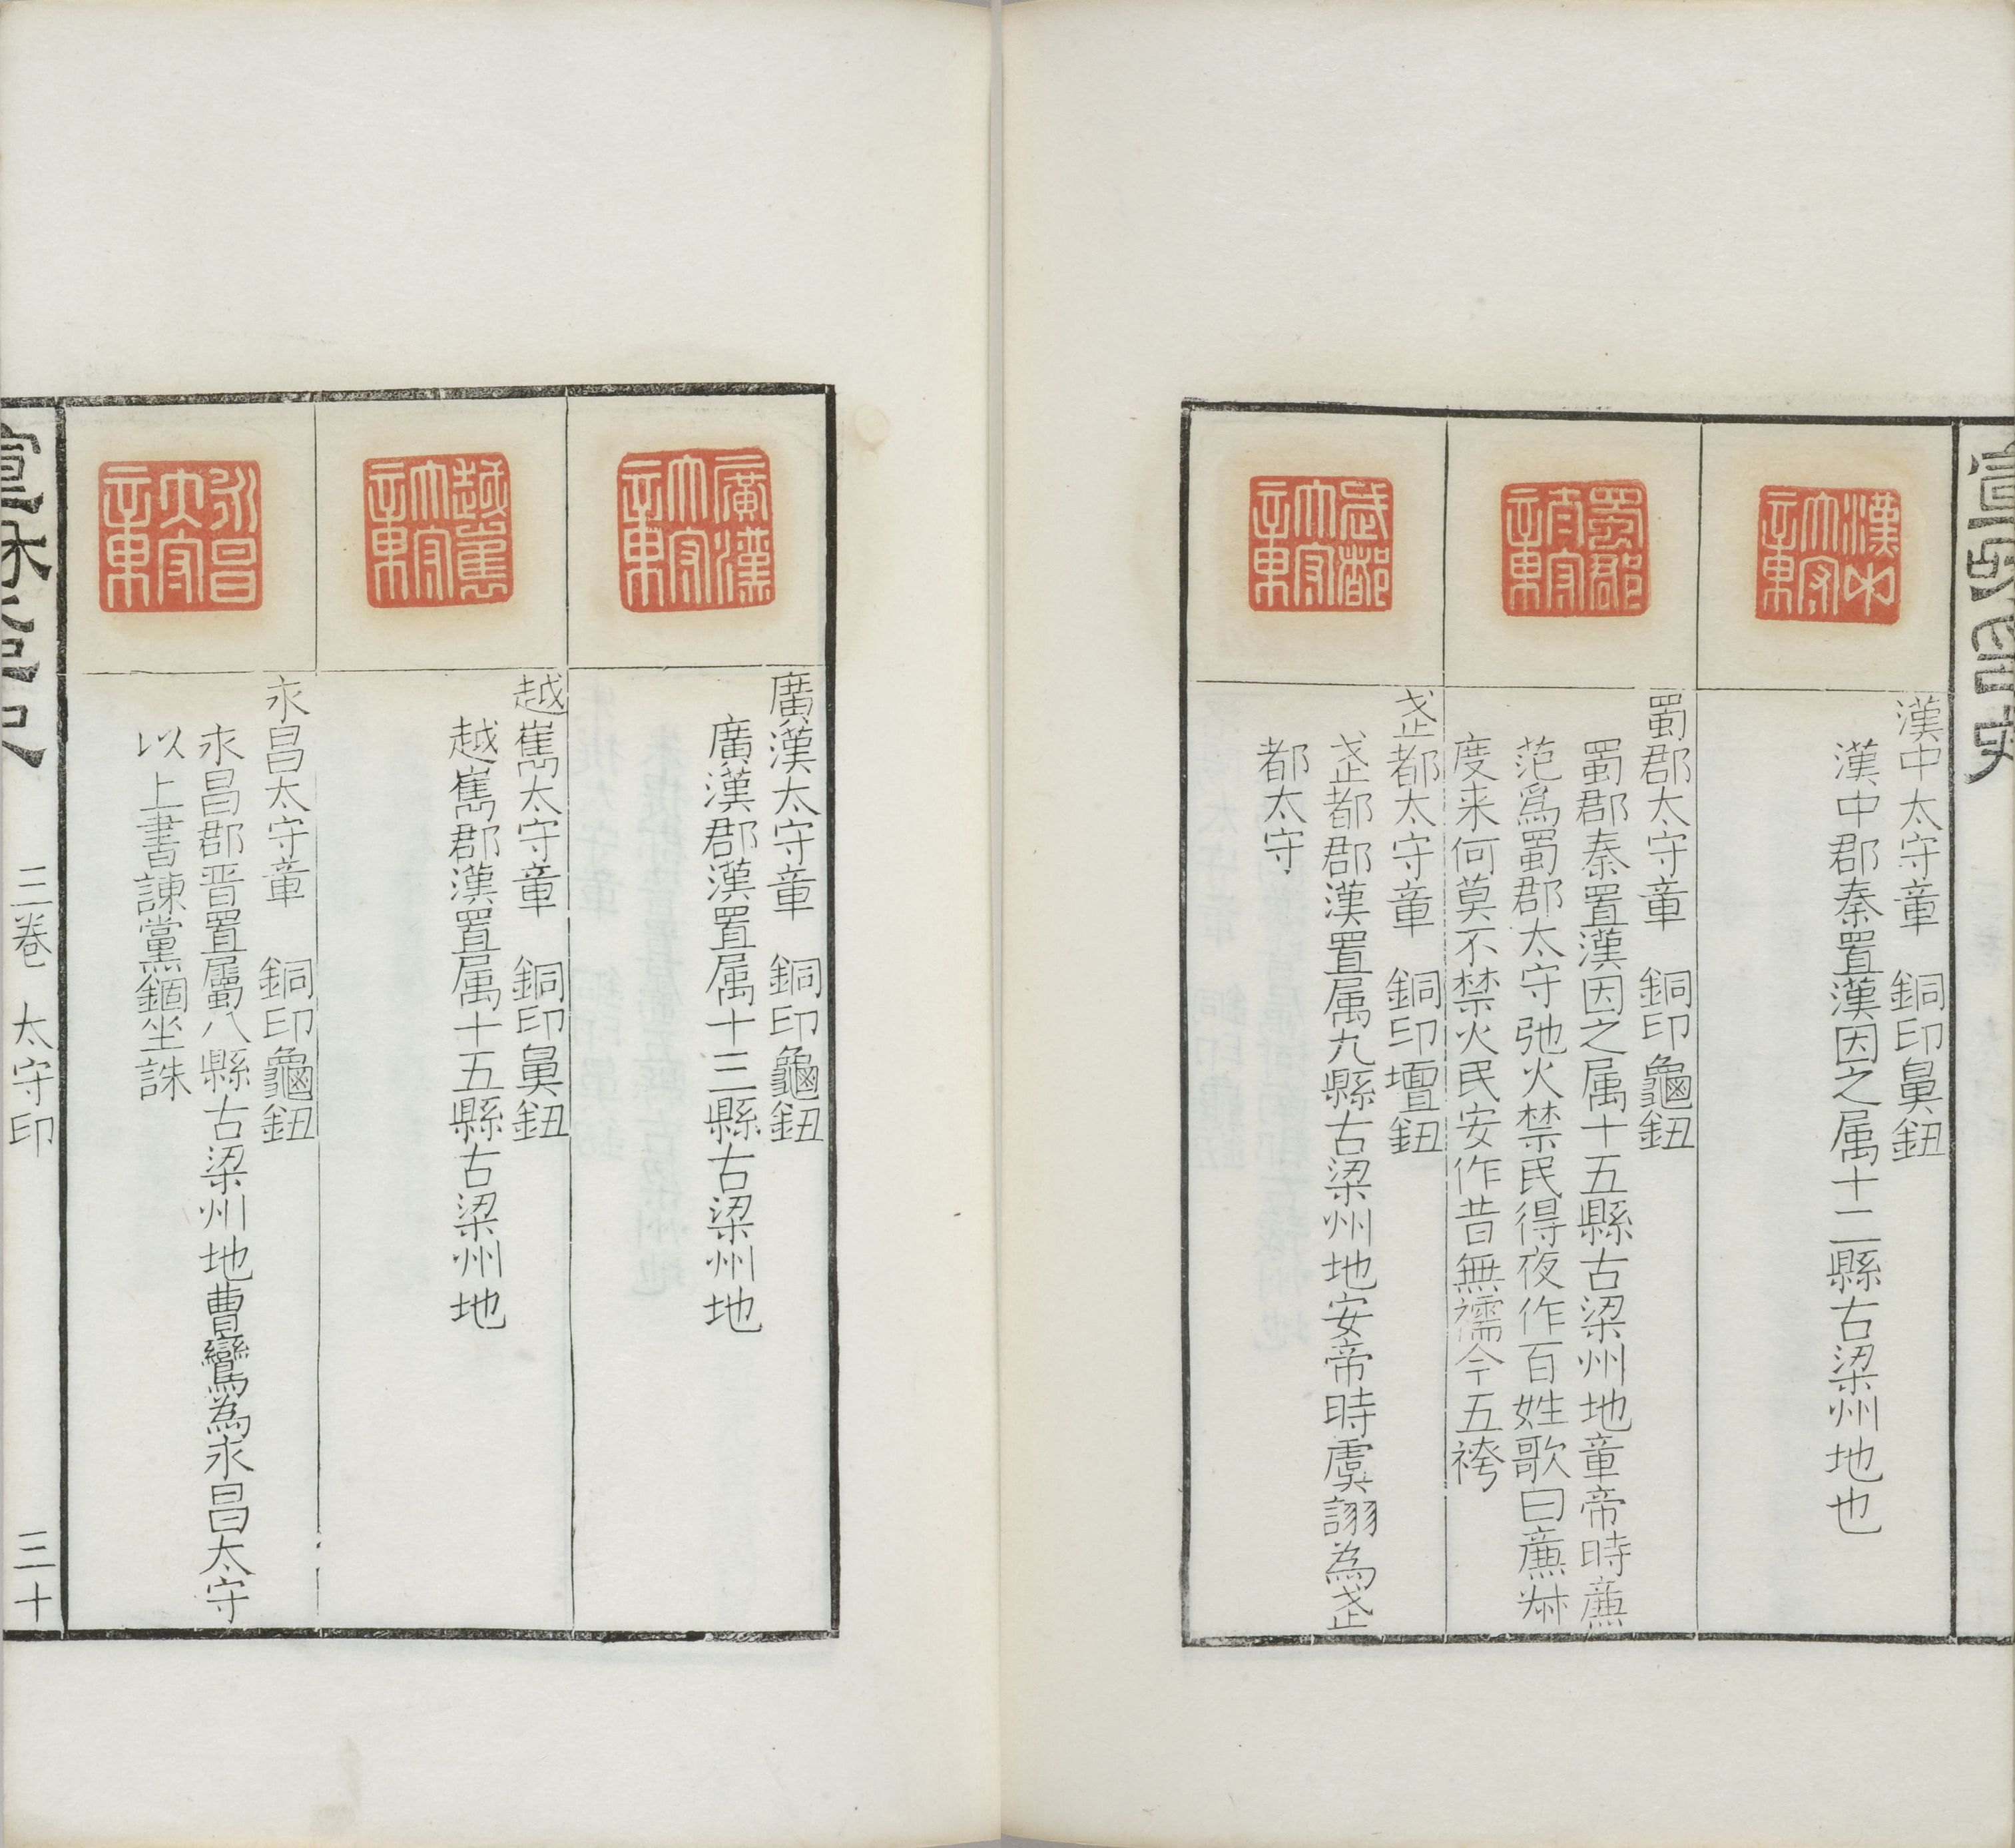 宣和印史
漢中大守章
漢中太守章　銅印鼻鈕
漢中郡秦置漢因之属十二縣古梁州地也
蜀郡大守章
蜀郡太守章　銅印龜鈕
蜀郡秦置漢因之属十五縣古梁州地章帝時廉
范爲蜀郡太守弛火禁民得夜作百姓歌曰廉叔
度来何莫不禁火民安作昔無襦今五袴
武都大守章
武都太守章　銅印壇鈕
武都郡漢置属九縣古梁州地安帝時虞詡為武
都太守
廣漢大守章
廣漢太守章　銅印龜鈕
廣漢郡漢置属十三縣古梁州地
越巂大守章
越巂太守章　銅印鼻鈕
越巂郡漢置属十五縣古梁州地
永昌大守章
永昌太守章　銅印龜鈕
永昌郡晋置屬八縣古梁州地曹鸞為永昌太守
以上書諫黨錮坐誅
宣和印史　三卷　太守印　三十